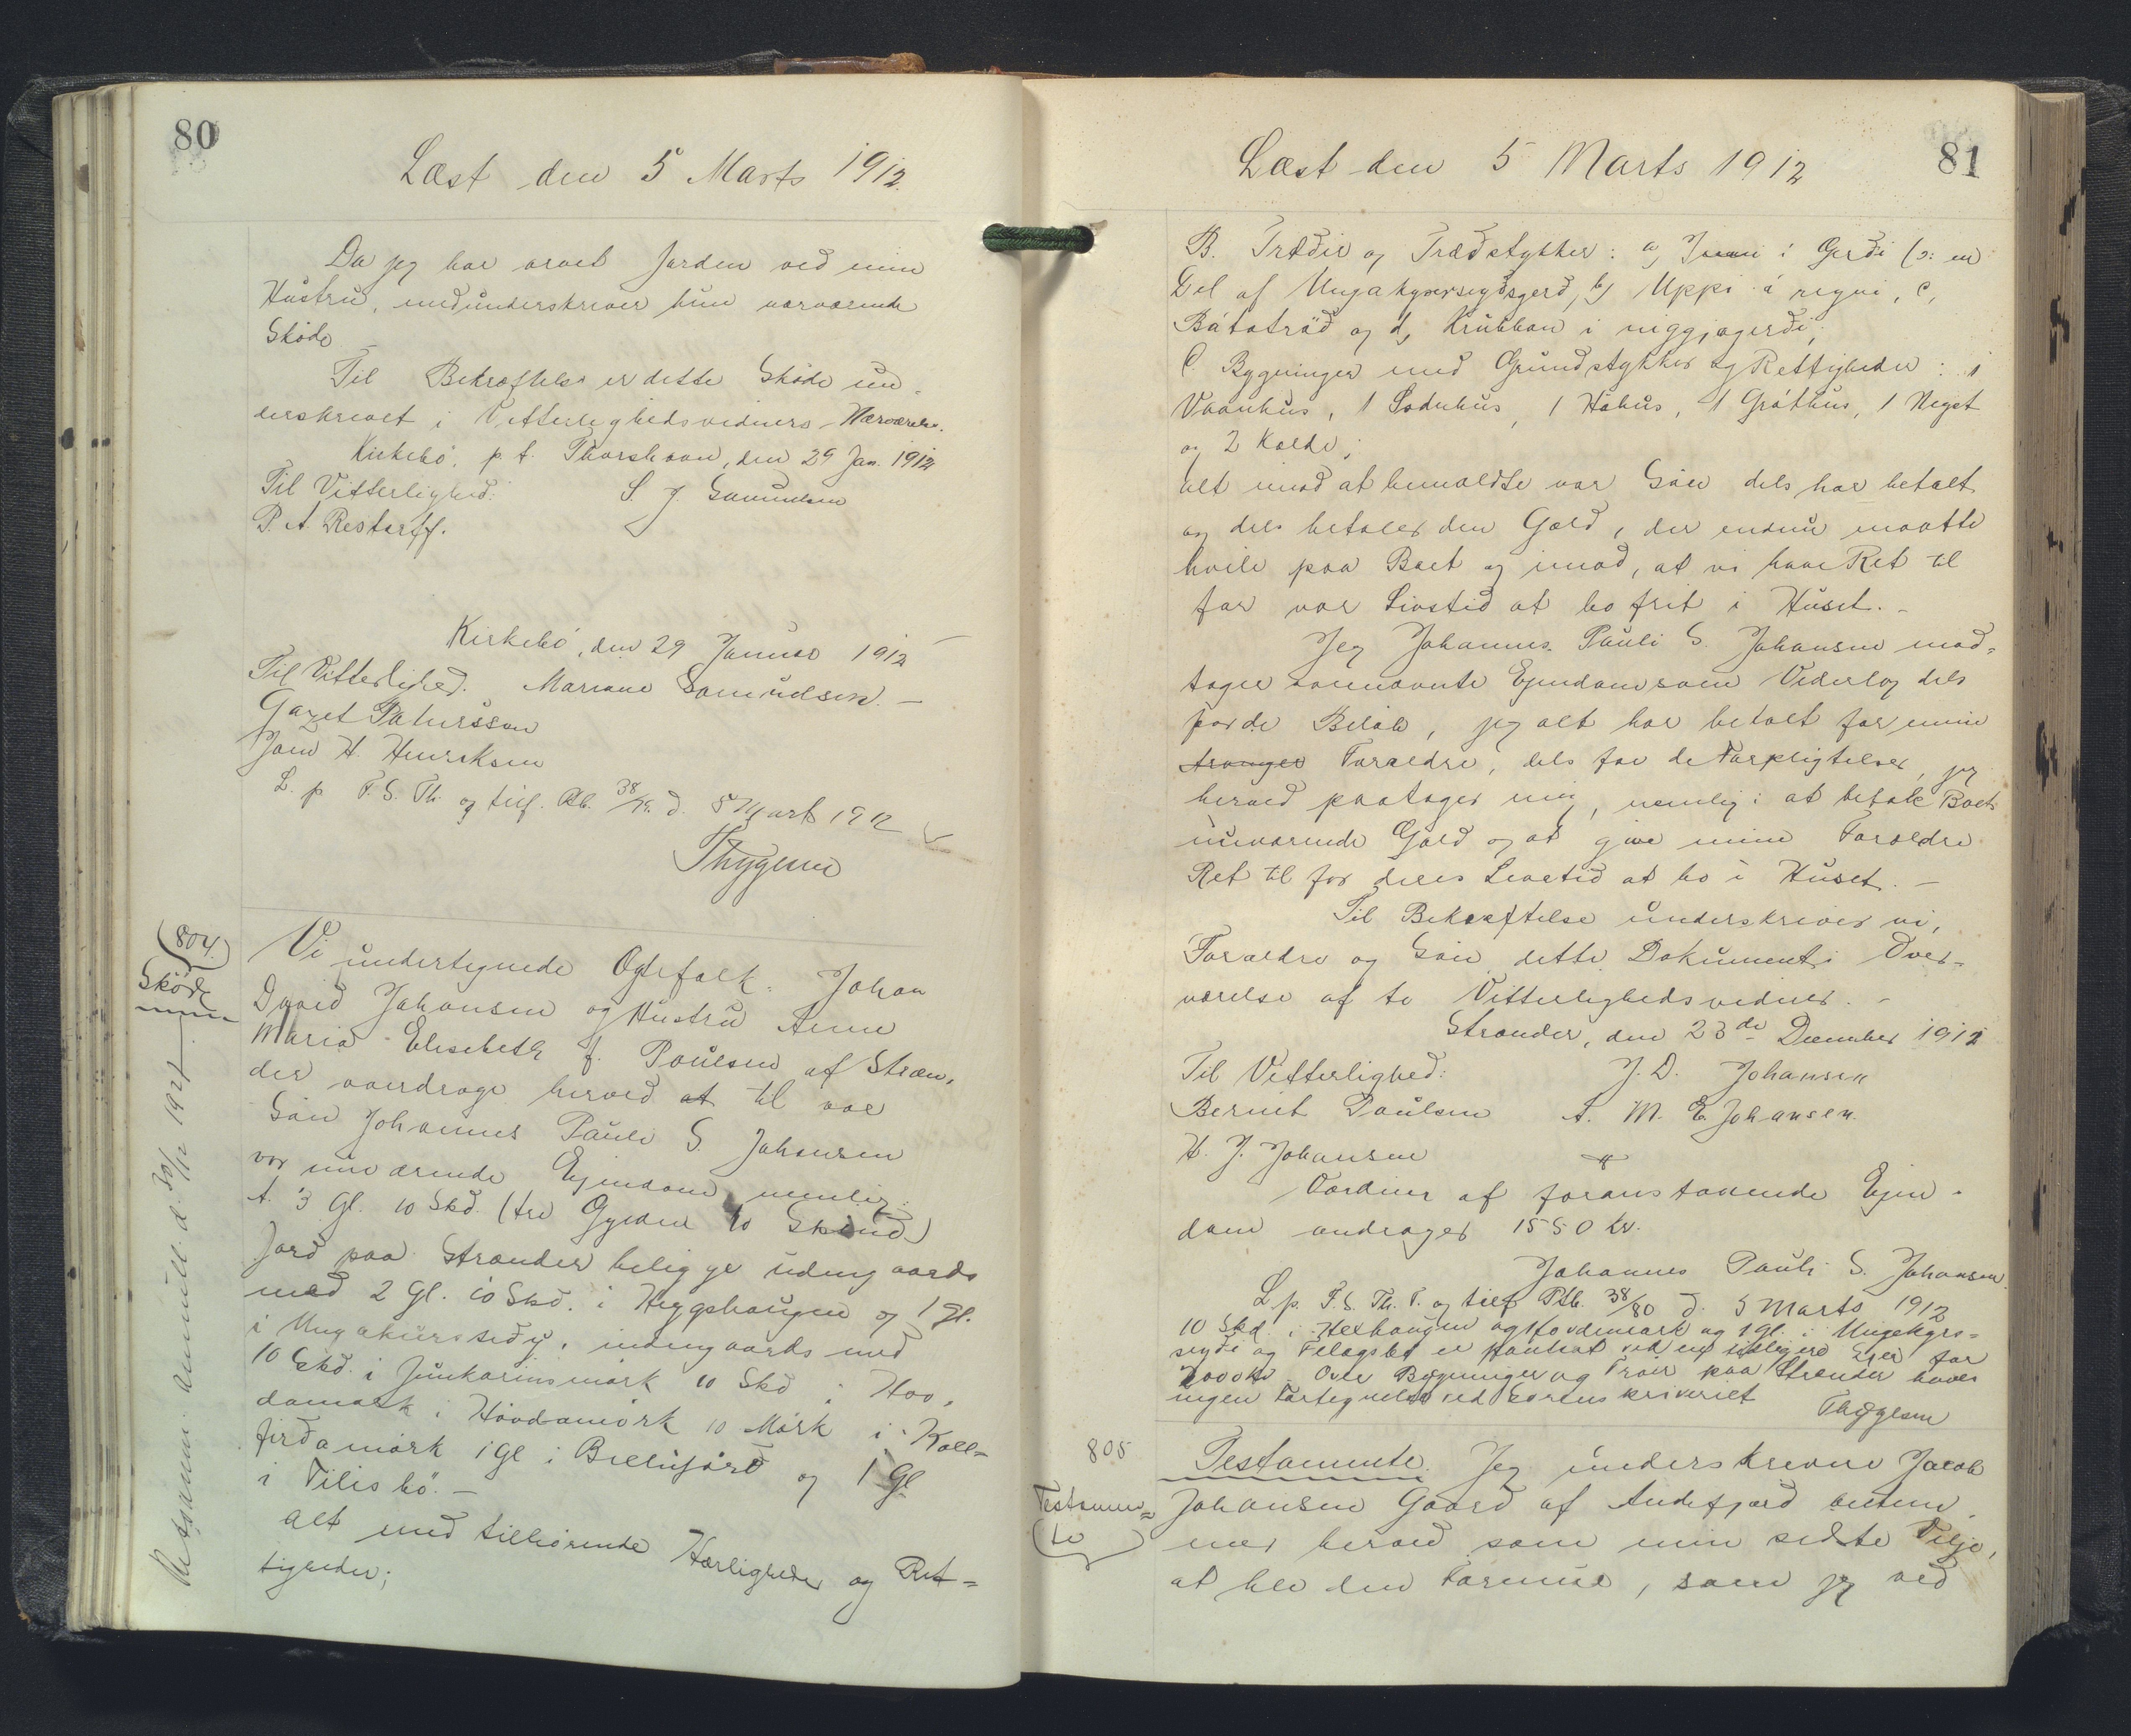 80
Læst den 5 Marts 1912.
Da jeg har arvet Jorden ved min
Hustru, medunderskriver hun nærværende
Skøde
Til Bekræftelse er dette Skøde un-
derskrevet i Vitterlighedsvidners Nærværelse.
Kirkebö, p.t. Thorshavn, den 29 Jan. 1912
Til Vitterlighed: S J Samuelsen
P. A. Restorff.
Kirkebö, den 29 Januar 1912
Til Vitterlighed. Mariane Samuelsen.
Patursson
H. Henriksen
L. p. F. S. Th. og tilf. Ptb. 38/79. d. 5 Marts 1912
Thygesen
(804.)
Skøde
Retsanm. annull. d. 30/12 1921
Vi undertegnede Ægtefolk: Johan
David Johansen og Hustru Anne
Maria Elisebeth f. Poulsen af Stræn-
der overdrage herved at til vor
Søn Johannes Pauli S. Johansen
vor nuværende Ejendom nemlig:
A. 3 Gl. 10 Skd. (tre Gylden 10 Skind)
Jord paa Strænder beligge udengaards
med 2 Gl. 10 Skd. i Heygshaugen og 1 Gl.
i Ungakursseidy, indengaards med
10 Skd. i Junkarinsmørk 10 Skd i Hov-
damørk i Hövdamörk 10 Mörk i Koll-
firdamörk 1 gl i Brellufjørd og 1 Gl
i Tilisbö. -
Alt med tilhørende Herligheder og Ret-
tigheder;
Læst den 5 Marts 1912
81
B. Træðir og Træðstykker: a, Innni i Gerði (ɔ: en
Del af Ungakyrseyðsgerð, b, Uppi á regni, c,
Bátatröð og d, Krubban i niggjagerði;
C Bygninger med Grundstykker og Rettigheder: 1
Vaanhus, 1 Sodnhus, 1 Høhus, 1 Gróthus, 1 Neyst
og 2 Kalde;
alt imod at bemeldte vor Søn dels har betalt
og dels betaler den Gæld, der endnu maatte
hvile paa Boet og imod, at vi have Ret til
for vor Livstid at bo frit i Huset. -
Jeg Johannes Pauli S. Johansen mod-
tager ovennævnte Ejendom som Vederlag dels
for de Beløb, jeg alt har betalt for mine
Forældre, dels for de Forpligtelser, jeg
herved paatager mig, nemlig: at betale Boets
nuværende Gæld og at give mine Forældre
Ret til for deres Levetid at bo i Huset. -
Til Bekræftelse underskriver vi,
Forældre og Søn dette Dokument i Over-
værelse af to Vitterlighedsvidner. -
Strænder, den 23de December 1912
Til Vitterlighed: J. D. Johansen
Bernt Poulsen A. M. E. Johansen.
H. J. Johansen
Værdien af foranstaaende Ejen-
dom andrager 1550 Kr.
Johannes Pauli S. Johansen
L. p. F. S. Th. T. og tilf Ptb. 38/80 d. 5 Marts 1912
10 Skd. i Hexhaugen og Hovdemørk og 1 gl. i Ungekyrs-
seyde og Felagsbø er pantsat ved en tidligere Ejer for
2000 Kr. Over Bygninger og Trøer paa Strænder haves
ingen Fortegnelse ved Sorenskriveriet
Thygesen
805
Testamen-
te
Testamente. Jeg underskrevne Jacob
Johansen Gaard af Andefjord bestem-
mer herved som min sidste Vilje,
at hele den Formue, som jeg ved